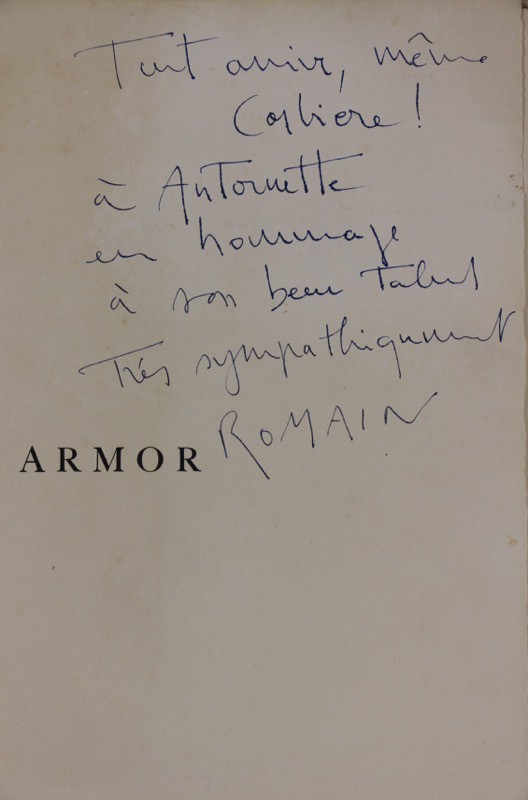 Tout arrive, même
Corbière !
à Antoinette
en hommage
à son beau talent
Très sympathiquement
ROMAIN
ARMOR